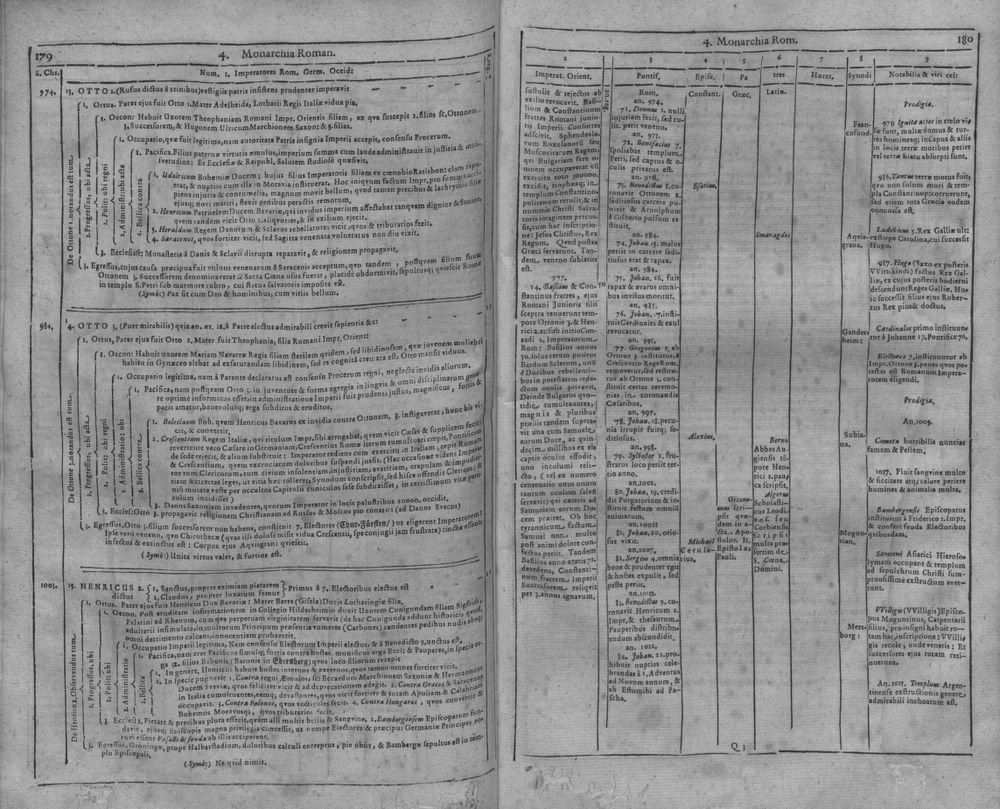 179
4. Monarchia Roman.
a. Chr.
Num. 1. Imperatores Rom. Germ. Occid:
974.
13. OTTO 2. (Rufus dictus à crinibus) vestigia patris insistens prudenter imperavit
De Ottone 2. notandus est eum
1. Ortus. Pater ejus fuit Otto 1. Mater Adelheida, Lotharii Regis Italiæ vidua pia,
2. Progressus, ubi acta
1. Oecon: Habuit Uxorem Theophaniam Romani Impr. Orientis filiam, ex qua suscepit 2. filios sc, Ottonem
3. Successorem, & Hugonem Ulricum Marchionem Saxon: & 5. filias.
2. Polit: ubi regni
1. Occupatio, quæ fuit legitima, nam autoritate Patris insignia Imperii accepit, consensu Procerum.
2. Administratio: ubi acta
1. Pacifica. Filius paternæ virtutis æmulus, imperium summa cum laude administravit in justitia &
svetudine: Et Ecclesiæ & Reipubl. Salutem studiosè quæsivit.
2. Bellica contra
1. Udalricum Bohemiæ Ducem; hujus filius Imperatoris filiam ex cœnobio Ratisbonf. clam
erat, & nuptias cum illa in Moravia instituerat. Hoc iniquum factum Impr, pro summa
piens injuria & contumelia, magnum movit bellum, quod tamen precibus & lachrymis filiæ
ejusq; novi mariti, flexis genibus peractis remotum,
2. Henricum Patruelem Ducem Bavariæ, qui invidus imperium affectabat tanquam dignior & Senior,
quem tandem vicit Otto 2. aliquoties, & in exilium ejecit.
3. Heraldum Regem Danorum & Sclavos rebellatores vicit, quos & tributarios fecit.
4. Saracenos, quos fortiter vicit, sed Sagitta venenata vulneratus non diu vixit.
3. Ecclesiast: Monasteria à Danis & Sclavis disrupta reparavit, & religionem propagavit.
3. Egressus, cujus causa præcipua fuit vulnus venenatum à Saracenis acceptum, quo tandem, postquam filium suum
Ottonem 3. Successorem denominaverat & Sacra Cœna usus fuerat, placidè obdormivit, sepultusq; quiescit Romæ
in templo S. Petri sub marmore rubro, cui status salvatoris imposita est.
(Symb:) Pax sit cum Uno & hominibus, cum vitiis bellum.
984.
14. OTTO 3. (Puer mirabilis) quia an. æt. 12, à Patre electus admirabili crevit sapientia &c:
De Ottone 3. notandus est eum
1. Ortus, Pater ejus fuit Otto 2. Mater fuit Theophania, filia Romani Impr. Orient:
2. Progressus, ubi acta
1. Oecon: Habuit uxorem Mariam Navaræ Regis filiam sterilem quidem, sed libidinosam, quæ juvenem muliebri
habitu in Gynæceo alebat ad exsaturandam libidinem, sed re cognitâ cremata est, Otto mansit viduus.
2. Polit: ubi regni
1. Occupatio legitima, nam à Parente declaratus est consensu Procerum regni, neglecta invidia aliorum,
2. Administratio: ubi
1. Pacifica, nam postquam Otto 3. in juventute & forma egregia in linguis & omni disciplinarum
re optime informatus esset; in administratione Imperii fuit prudens, justus, magnificus, fortis &
pacis amator, benevolusq; erga subditos & eruditos.
2. Bellica contra
1. Boleslaum Boh. quem Henricus Bavarus ex invidia contra Ottonem, 3. instigaverat, hunc bis vi-
cit, & convertit.
2. Crescentium Regem Italiæ, qui titulum Impr. sibi arrogabat, quem vicit Cæsar & supplicem fecit
reverteretur vero Cæsare in Germaniam; Crescentius Romæ iterum tumultuari cœpit, Pontificem
de sede rejecit, & alium substituit: Imperator rediens cum exercitu in Italiam, repit Romam
& Crescentium, quem excruciatum doloribus suspendi jussit.
3. Danos Saxoniam invadentes, quorum Imperator in locis palustribus 20000. occidit.
3. Eccles: Otto 3. propagavit religionem Christianam ad Russos & Moscos pio conatu (ad Danos Svecos)
3. Egressus, Otto 3. filium successorem non habens, constituit 7. Electores (Chur-Fürsten) ut eligerent Imperatorem:
Ipse verò veneno, quo Chirothecæ (quas illi dolosè misit vidua Crescentii, spe conjugii jam frustrata) tinctæ essent
infectus & extinctus est: Corpus ejus Aquisgrani quiescit.
(Symb:) Unita virtus valet, & fortior est.
1003.
15. HENRICUS 2. dictus
1. Sanctus, propter eximiam pietatem
2. Claudus, propter luxatum femur
Primus à 7. Electoribus electus est
De Henrico 2. Observandus eum
1. Ortus. Pater ejus fuit Henricus Dux Bavariæ: Mater Berra (Gisela) Ducis Lotharingiæ filia,
2. Progressus, ubi
1. Oecon. Post eruditam informationem in Collegio Hildesheimio duxit Uxorem Cunigundam filiam Sigfridi,
Palatini ad Rhenum, cum qua perpetuam virginitatem servavit (de hac Cunigunda addunt historici, quod,
adulterii insimulata, in multorum Principum præsentia vomeres (Carbones) candentes pedibus nudis absq;
omni detrimento calcans, innocentiam probaverit.
2. Polit: ubi regni
1. Occupatio Imperii legitima, Nam consensu Electorum Imperii electus, & à Benedicto 9, unctus est,
2. Administratio
1. Pacifica, nam erat Pacificus simulq; fortis contra hostes, munificus erga Eccl: & Pauperes, in specie er-
ga 32. filios Babonis (Baronis in Ebersberg) quos loco filiorum recepit
2. Bellica
1. In genere, Henricus habuit hostes internos & externos, quos tamen omnes fortiter vicit,
2. In specie pugnavit 1. Contra regni Æmulos, sc: Eccardum Marchionem Saxoniæ & Hermannum
Ducem Sveviæ, quos feliciter vicit & ad deprecationem adegit. 2. Contra Græcos & Saracenos
in Italia tumultuantes, eamq; devastantes, quos vicit fortiter & totam Apuliam & Calabriam
occupavit. 3. Contra Polonos, quos vectigales fecit. 4. Contra Hungaros, quos convertit &
Bohemos Moravosq; quos tributarios fecit.
3. Ecclesiast. Pietate & precibus plura effecit, quam alii multis bellis & Sangvine, 2. Bambergensem Episcopatum fun-
davit, ejusq; Episcopis magna privilegia concessit, ut nempe Electores & præcipui Germaniæ Principes eo-
rum essent Vasalli & feuda ab illis acciperent.
3. Egressus, Groningæ, prope Halberstadium, doloribus calculi correptus, piè obiit, & Bambergæ sepultus est in tem-
plo Episcopali.
(Symb:) Ne quid nimis.
4. Monarchia Rom.
180
2
Imperat. Orient.
sustulit & rejectos ab
exilio revocavit. Basi-
lium & Constantinum
fratres Romani junio-
ris Imperii Consortes
adscivit. Sphendosla-
vum Roxolanorū seu
Moscovitarum Regem,
qui Bulgariam fere o-
mnem occupaverat cū
exercitu 300 300000.
excidit, tropheaq; in
templum Constantino-
politanum retulit, & in
nummis Christi Salva-
toris imaginem percus-
sit, cum hac inscriptio-
ne: Jesus Christus, Rex
Regum. Quod postea
Græci servarunt. Tan-
dem, veneno sublatus
est.
977.
14. Basilius & Con-
stantinus fratres, ejus
Romani Junioris filii
sceptra tenuerunt tem-
pore Ottonis 3. & Hen-
rici 2. ac sub initio Con-
radi 2. Imperatorum
Rom: Basilius annos
50. solus rerum potitus
Bardum Sclerum, unū
è Ducibus rebellanti-
bus in potestatem reda-
ctum oculis privavit.
Deinde Bulgaros quo-
tidie tumultuantes,
magnis & pluribus
præliis tandem supera-
vit una cum Samuele
eorum Duce, ac quin-
decim millibus ex eis
captis oculos effodit,
uno incolumi reli-
cto, (vel in numero
centenario unus unum
tantum oculum salvū
servavit) qui cæteros ad
Samuelem eorum Du-
cem præiret. Ob hoc
tyrannicum factum.
Samuel non multò
post animi dolore con-
fectus periit. Tandem
Basilius anno ætatis 72.
decedens, Constanti-
num fratrem, Imperii
Successorem reliquit
per 3. annos ignavum,
3
Pontif.
Rom.
an. 974.
71. Donnus 2. nulli
injuriam fecit, sed tu-
lit. perit veneno.
an. 975.
72. Bonifacius 7.
spoliabat templum,
Petri, sed captus & o-
culis privatus est.
an. 976,
73. Benedictus 7. co-
ronavit Ottonem 2.
seditiosos carcere pu-
nivit & Arnolphum
à Gilberto pulsum re-
stituit.
an. 984.
74. Johan. 15. ma-
letiit in carcere sedi-
tiosus erat & rapax.
an. 984.
75. Johan. 16. fuit
rapax & avarus omni-
bus invisus moritur.
an. 985.
76. Johan. 17. insti-
tuit Cardinales & exul
revocatur.
an. 995.
77. Gregorius 5. ab
Ottone 3. institutus, à
Crescentio Rege Rom.
removetur, sed restitu-
tus ab Ottone 3, con-
stituit certas ceremo-
nias in coronandis
Cæsaribus.
an. 997.
78. Johan. 18. pecu-
nia irrupit fuitq; se-
ditiosus.
an. 998.
79. Sylvester 2. fru-
stratus loco periit ter-
tio anno.
an. 1002.
80. Johan. 19. credi-
dit Purgatorium & in-
stituit festum omniū
animarum.
an. 1003:
81. Johan. 20. otio-
sus vixit.
an. 1007.
82. Sergius 4. omnia
benè & prudenter egit
& hostes expulit, sed
peste periit.
an. 1010.
83. Benedictus 9. co-
ronavit Henricum 2.
Impr, & thesaurum
Pauperibus distribu-
endum abscondidit.
an. 1022.
84. Johan. 21. pro-
hibuit nuptias cele-
brandas à 1. Adventus
ad Novum annum, &
ab Estomihi ad Pa-
scha.
4
Episc.
Constant.
Estius.
Alexius,
Michael
Cerula-
rius,
5
Pa
Græc.
Oecume-
nius scri-
psit quæ-
dam in a-
cta. Apo-
stolor. It.
Epistolas
Pauli.
6
tres
Latin.
Smaragdus
Berno
Abbas Au-
giensis tē-
pore Hen-
rici 2. pau-
ca scripsit.
Algerus
Scholasti-
cus Leodi-
ens. seu
Corbiensis
scripsit
multa præ-
sertim de
S. Cœna
Domini.
7
Hæret.
8
Synodi
Fran-
cofurd.
Aquis-
grana.
Gander-
heim:
Subia-
na.
Mogun-
tian.
Mers-
borg:
9
Notabilia & viri cel:
Prodigia.
979 Ignitæ acies in cœlo vi-
sæ sunt, multæ domus & tur-
res hominesq; in aquis & aliis
in locis terræ motibus perire
vel terræ hiatu absorpti sunt.
986. Tantus terræ motus fuit,
quo non solum muri & tem-
pla Constantinop. corruerunt,
sed etiam tota Græcia eodem
concussa est,
Ludovicus 5. Rex Galliæ ult:
ex stirpe Carolina, cui successit
Hugo.
987. Hugo (Saxo ex posteris
VVittikindi) factus Rex Gal-
liæ, ex cujus posteris hodierni
descendunt Reges Galliæ, Hu-
ic successit filius ejus Rober-
tus Rex pius & doctus.
Cardinales primo instituun-
tur à Johanne 17. Pontifice 76.
Electores 7. instituuntur ab
Impr. Ottone 3. penes quos po-
testas est Romanum Impera-
torem eligendi.
Prodigia.
An. 1005.
Cometa horribilis nuncius
famem & Pestem.
1017. Pluit sangvine multo
& siccitate atq; calore periere
homines & animalia multa,
Bambergensis Episcopatus
instituitur à Friderico 1. Impr.
& confert feuda Electoribus
quibusdam.
Saraceni Asiatici Hieroso-
lymam occupant & templum
ad sepulchrum Christi sum-
ptuosissimè exstructum ever-
tunt.
VVilligis (VVilligis) Episco-
pus Moguntinus, Carpentarii
filius, pro insigni habuit ro-
tam hac inscriptione: VVilli-
gis recole, unde veneris: Et
successores ejus rotam reti-
nuerunt.
An. 1015. Templum Argen-
tinense exstructionis genere
admirabili inchoatum est.
Q 3